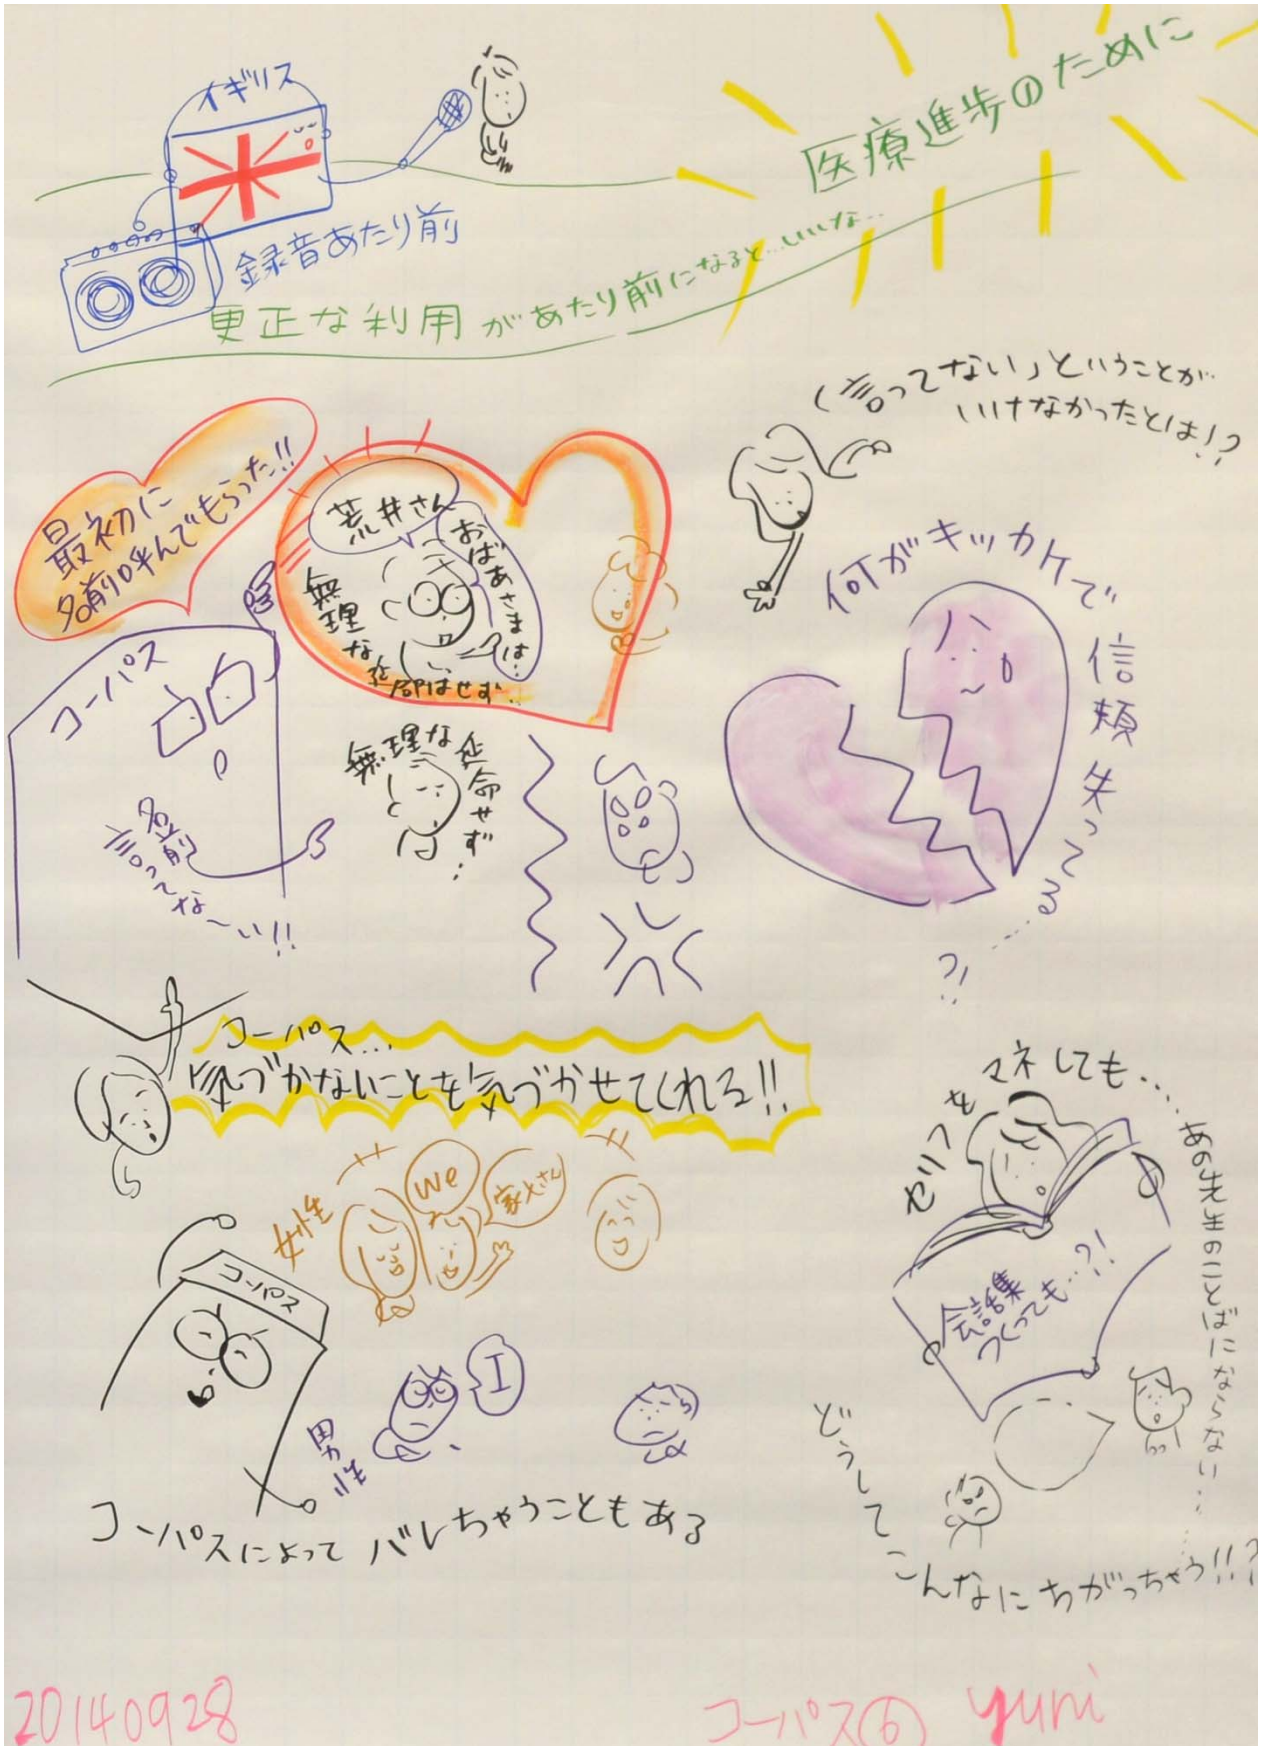 イギリス
録音あたり前
医療進歩のために
更正な利用があたり前になると…いいな…
「言ってない」ということが
いけなかったとは!?
最初に
名前呼んでもらった!!
荒井さん
おばあさまは…
無理な延命はせず…
コーパス
名前
言ってな〜い!!
無理な延命せず…
何がキッカケで信頼失ってる……?!
コーパス…
気づかないことを気づかせてくれる!!
女性
We
家父さん
コーパス
男性
I
コーパスによってバレちゃうこともある
セリフをマネしても…あの先生のことばにならない……
会話集
つくっても…?!
どうしてこんなにちがっちゃう!!?
20140928
コーパス⑥ yuni